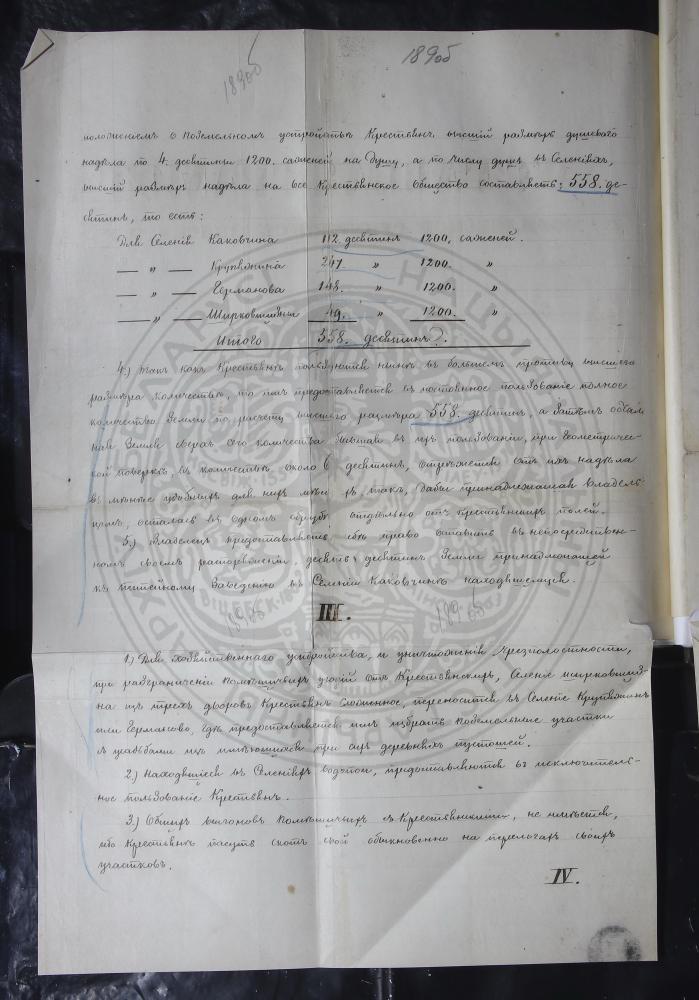 189об
189об
положеніемъ о поземельномъ устройствѣ Крестьянъ высшій размѣръ душеваго
надѣла по 4. десятины 1200. саженей на душу, а по числу душъ въ Селеніяхъ,
высшій размѣръ надѣла на все Крестьянское Общество составляетъ: 558. де-
сятинъ, то есть:
Для Селенія Каковчина 112 десятинъ 1200. саженей.
— „ — Крупянина 247. „ 1200. „
— „ — Германова 148. „ 1200. „
— „ — Ширковщизны 49. „ 1200. „
Итого 558. десятинъ.
4.) Такъ какъ Крестьяне пользуются нынѣ въ большемъ противу высшаго
размѣра количествѣ, то имъ предоставляется въ постоянное пользованіе полное
количество Земли по расчету высшаго размѣра 558. десятинъ, а Затѣмъ осталь
ная Земля сверхъ сего количества бывшая въ ихъ пользованіи, при Геометричес-
кой повѣркѣ въ количествѣ около 6 десятинъ, отрѣжется отъ ихъ надѣла
въ мѣстѣ удобныхъ для нихъ такъ, дабы принадлежащая владѣль-
цамъ, осталась въ одномъ отдѣльно отъ крестьянскихъ полей.
5.) Владѣлецъ предоставляетъ себѣ право оставить въ непосредствен-
номъ своемъ распоряженіи, десять десятинъ Земли принадлежащей
къ питейному Заведенію въ Селеніи Каковчинѣ находящемуся.
189об
189об
III.
1.) Для хозяйственнаго устройства, и уничтоженія Чрезполостности,
при разграниченіи помѣщичьихъ угодій отъ Крестьянскихъ, Селеніе Ширковщиз-
на изъ трехъ дворовъ Крестьянъ Сложенное, переносится въ Селеніе Крупянинъ
или Германово, гдѣ предоставляется имъ избрать поземельные участки
съ усадьбами изъ имѣющихся при сихъ деревняхъ пустошей.
2.) Находящіеся въ Селеніяхъ водопои, предоставляются въ исключитель-
ное пользованіе Крестьянъ.
3.) Общихъ выгоновъ помѣщичьихъ съ Крестьянскими, не имѣется,
ибо Крестьяне пасутъ скотъ свой обыкновенно на перелогахъ своихъ
участковъ.
IV.